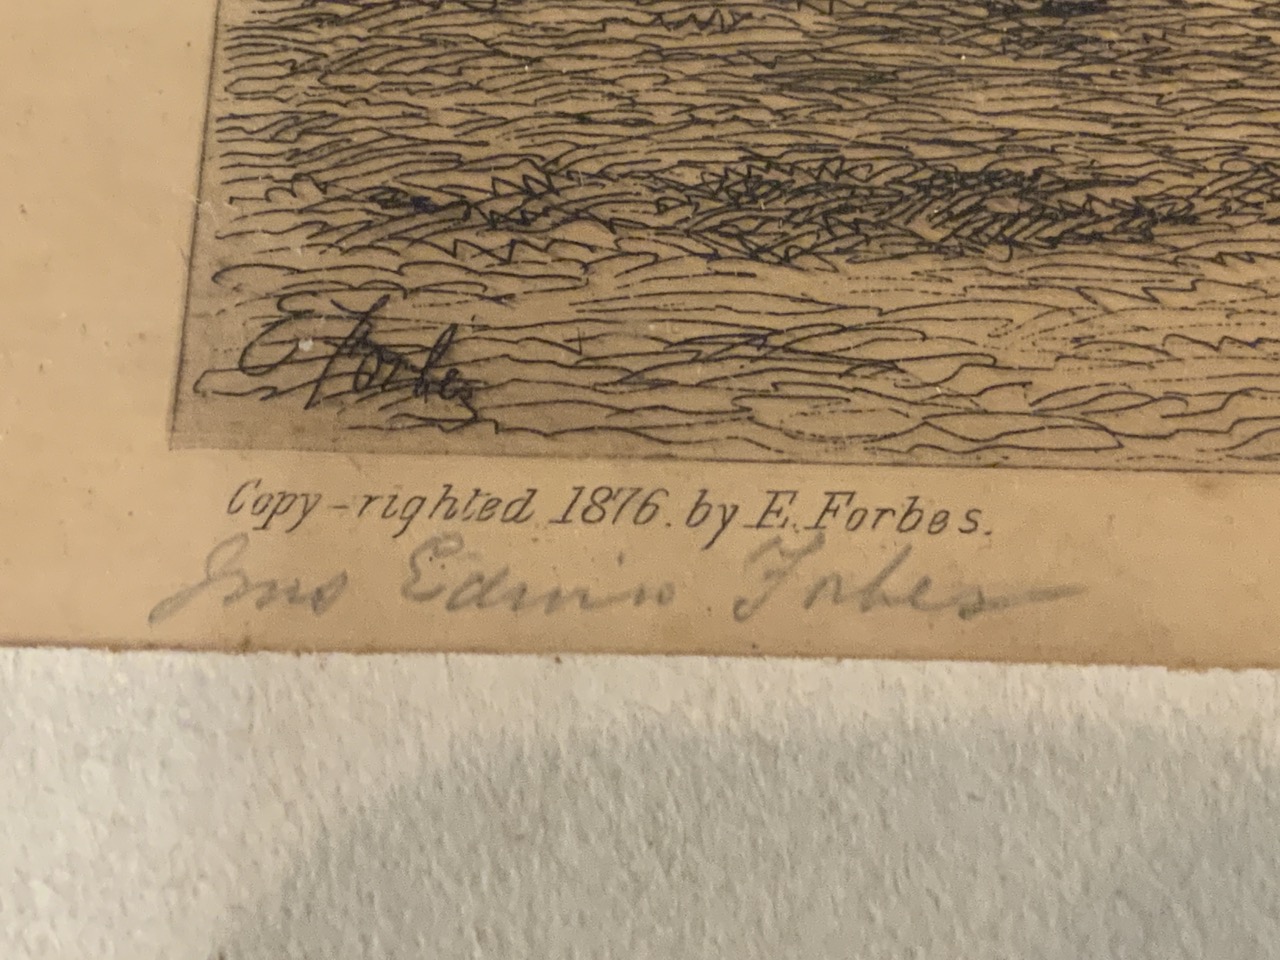 E Forbes
Copy-righted 1876. by E. Forbes.
Edwin Forbes